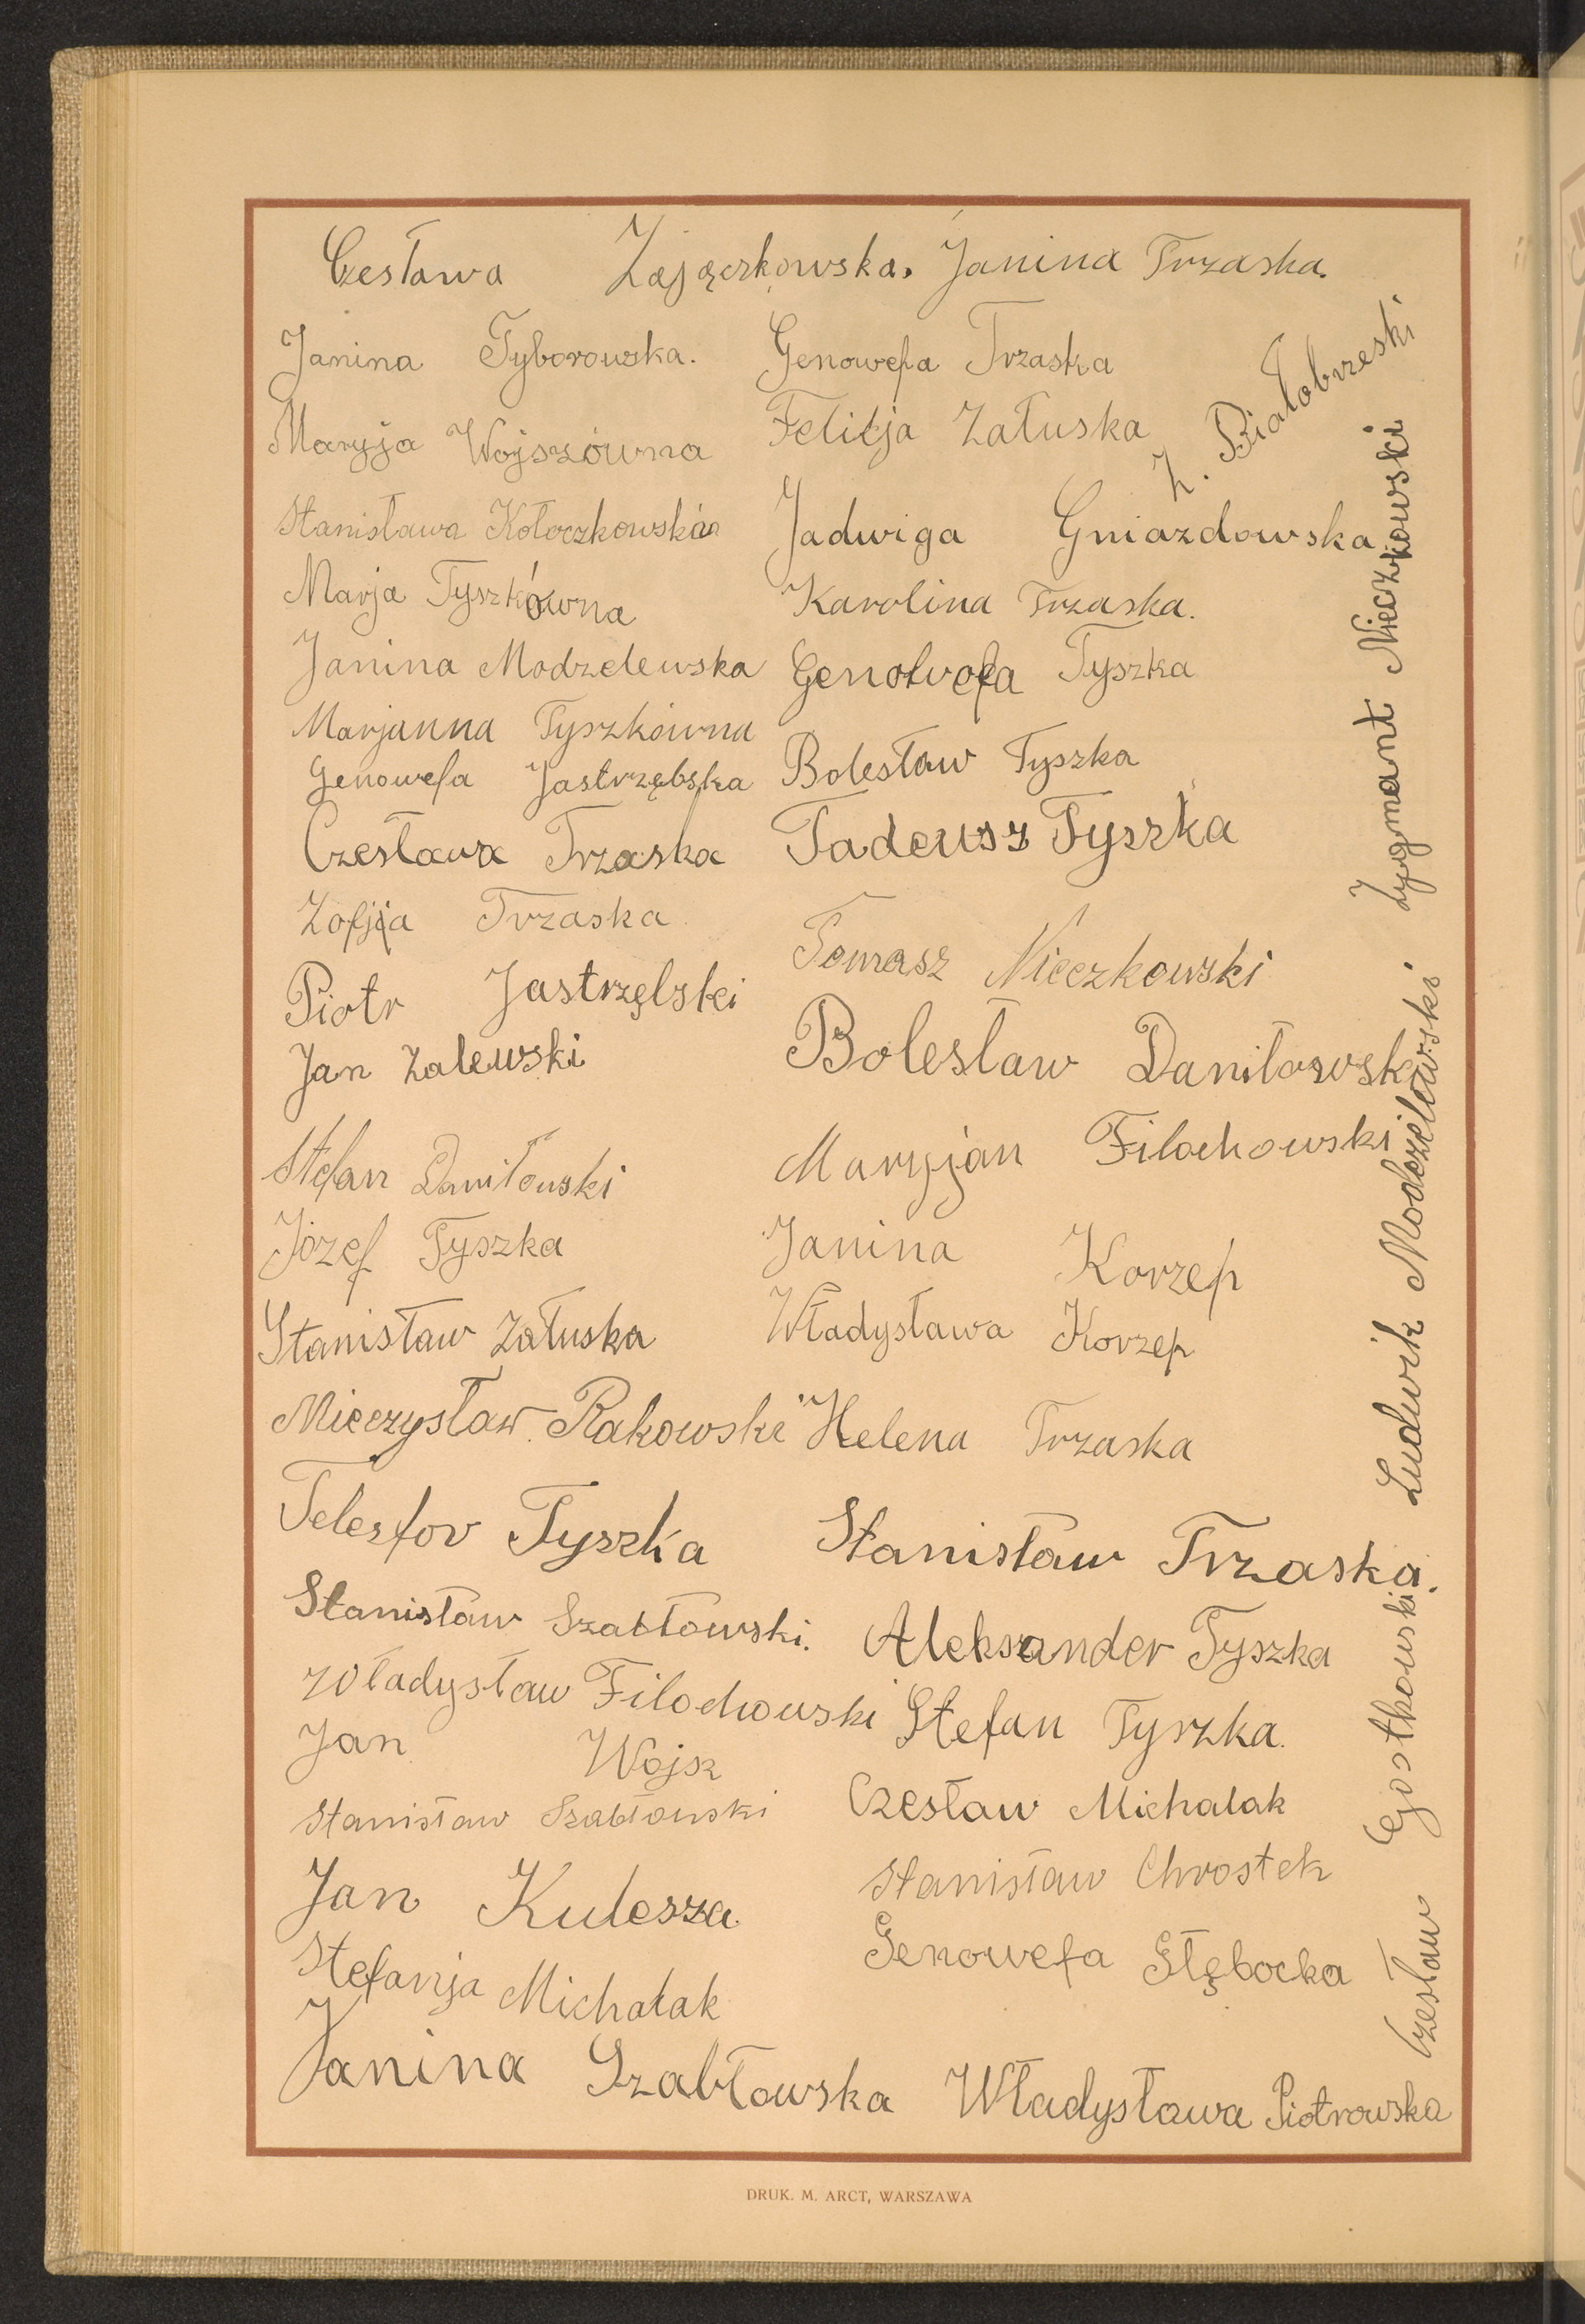 Czesława Zajączkowska. Janina Trzaska.
Janina Tyborowska.
Maryja Wojszówna
Stanisława Kołoczkowska
Marja Tyszkówna
Janina Modzelewska
Marjanna Tyszkówna
Genowefa Jastrzębska
Czesława Trzaska
Zofja Trzaska
Piotr Jastrzęlski
Jan Zalewski
Stefan Daniłowski
Józef Tyszka
Stanisław Załuska
Mieczysław Rakowski
Telesfor Tyszka
Stanisław Szabłowski.
Władysław Filochowski
Jan Wojsz
Stanisław Szabłowski
Jan Kulesza
Stefanja Michalak
Janina Szabłowska
Genowefa Trzaska
Felicja Załuska
Jadwiga Gniazdowska
Karolina Trzaska.
Genowefa Tyszka
Bolesław Tyszka
Tadeusz Tyszka
Tomasz Nieczkowski
Bolesław Daniłowski
Maryjan Filochowski
Janina Korzep
Władysława Korzep
Helena Trzaska
Stanisław Trzaska.
Aleksander Tyszka
Stefan Tyszka.
Czesław Michalak
Stanisław Chrostek
Genowefa Głębocka
Władysława Piotrowska
Z. Białobrzeski
Zygmont Nieczkowski
Ludwik Modzelewski
Czesław Gostkowski
DRUK. M. ARCT, WARSZAWA